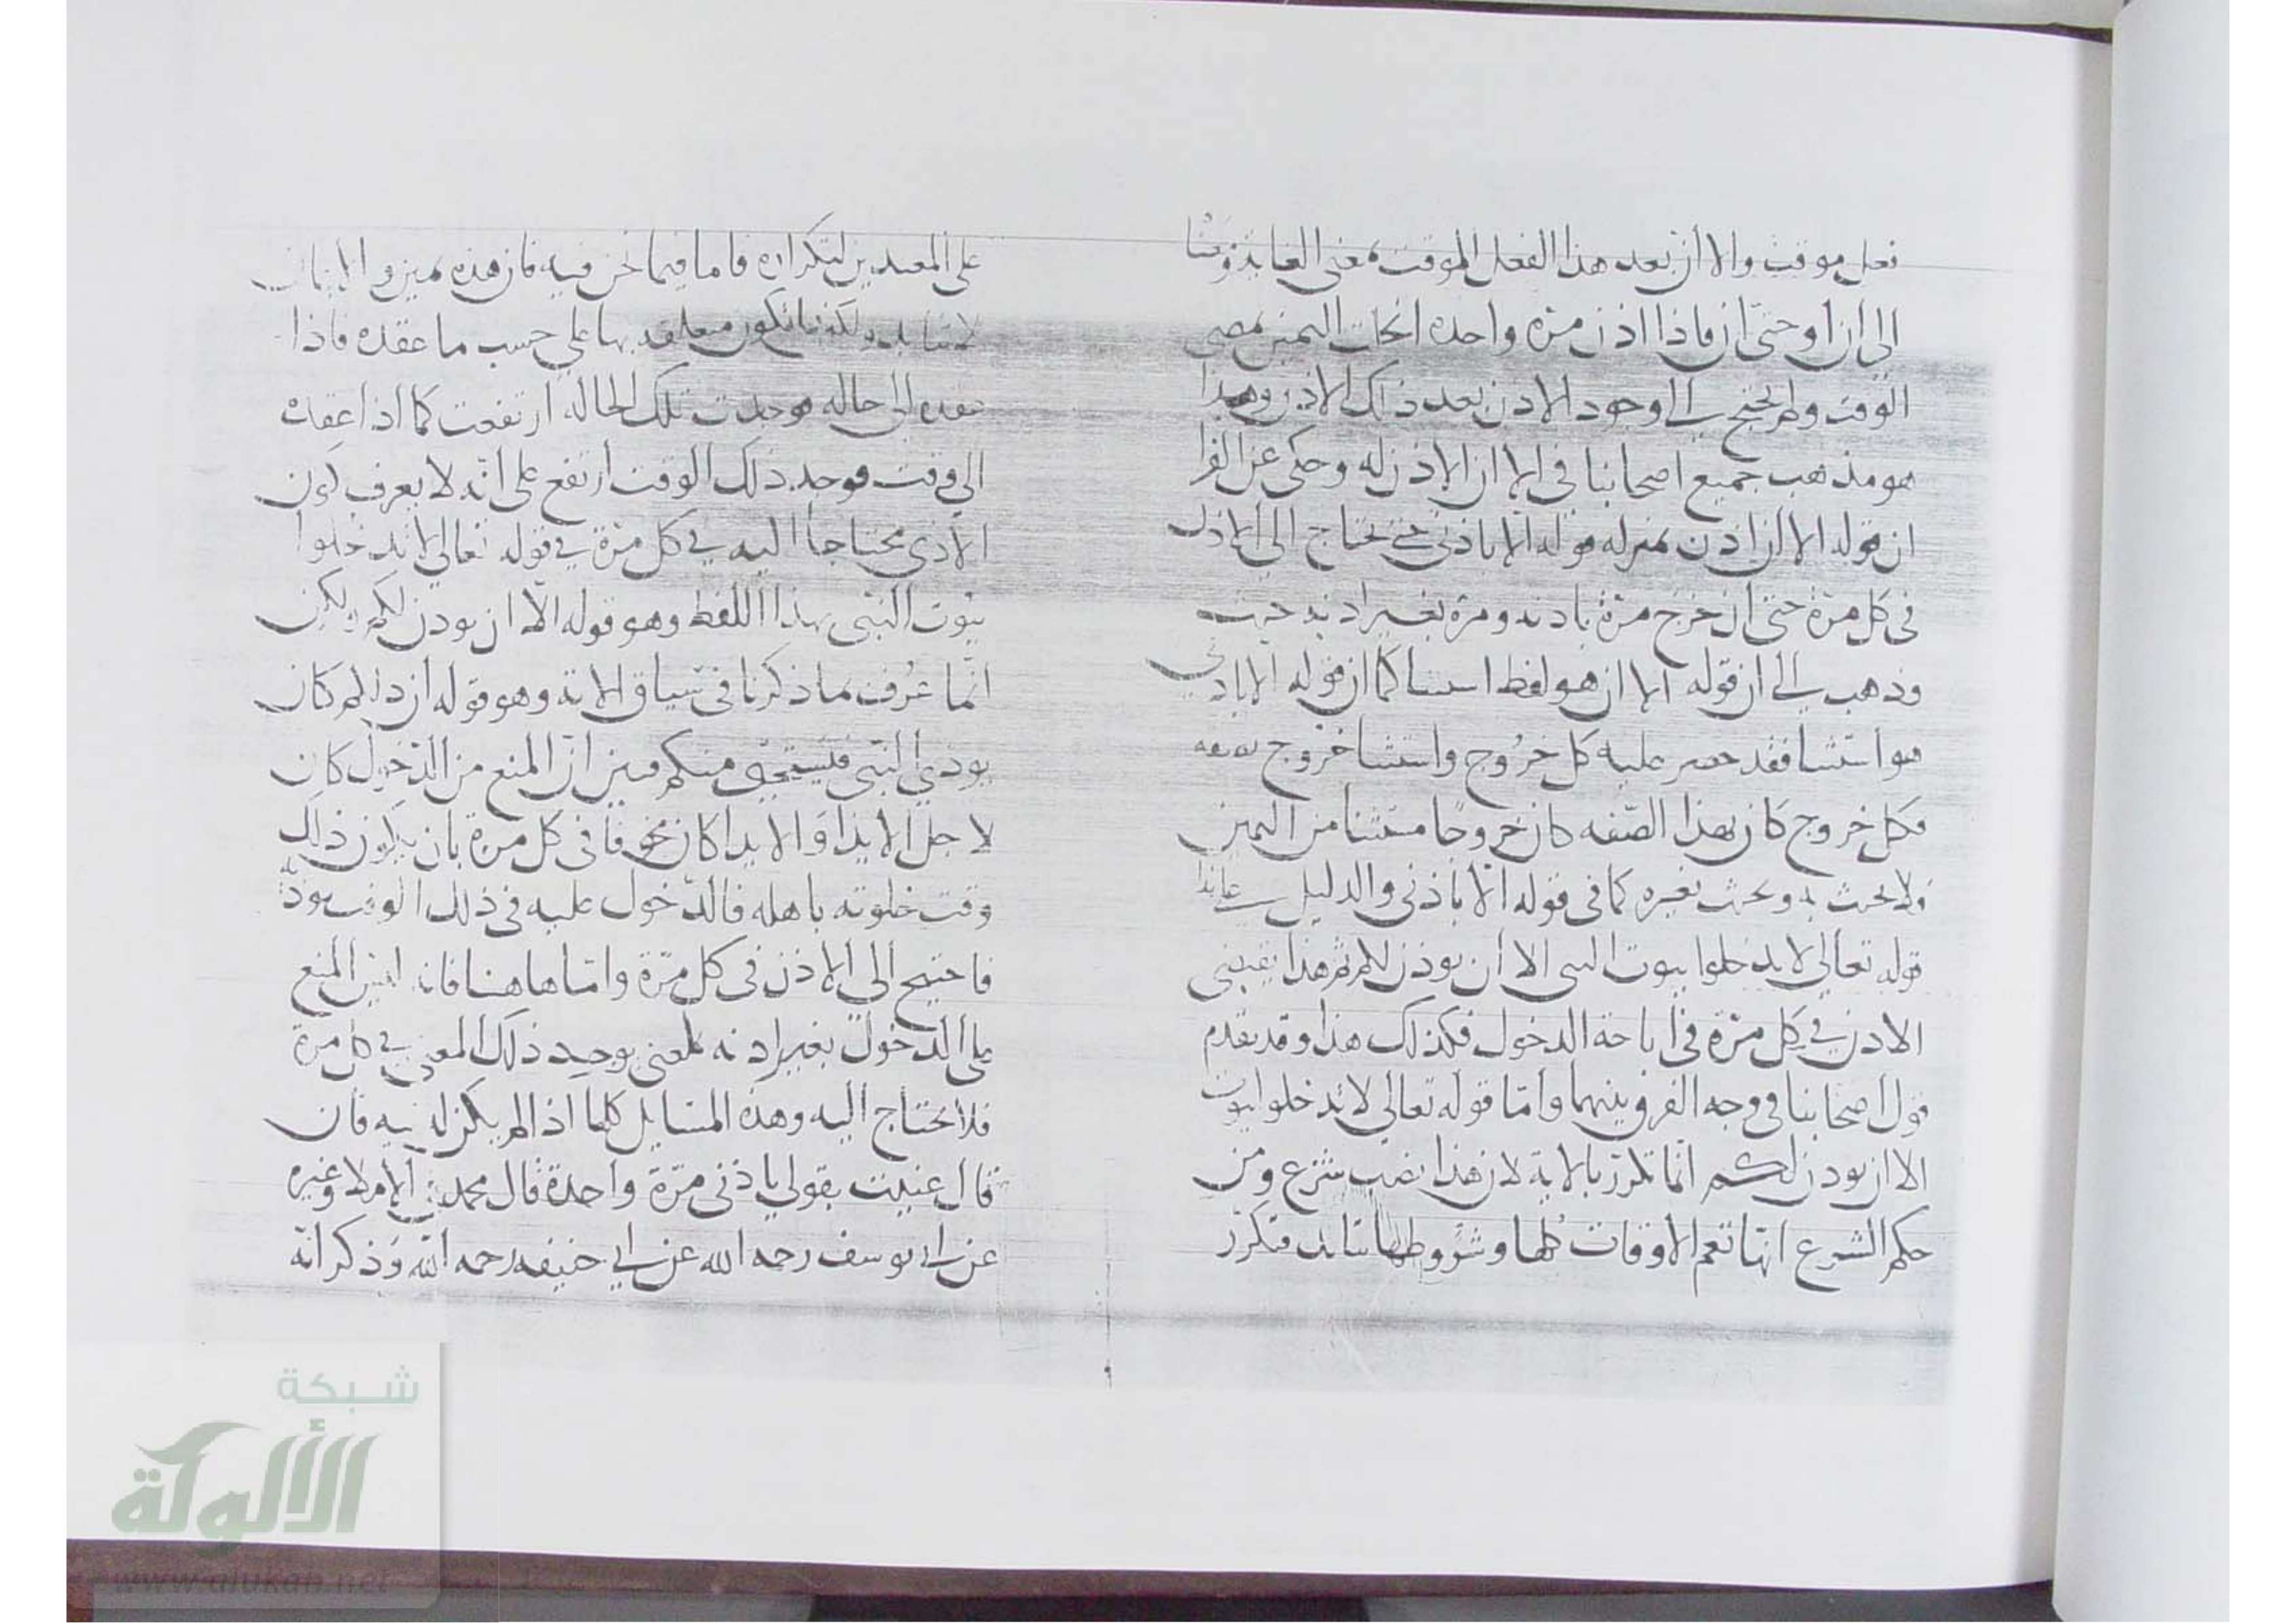 فعل موقت والا أن بعد هذا الفعل الموقت بمعنى الغاية
الى ان او حتى ان فاذا اذن مرة واحدة انحلت اليمين بمضي
الوقت ولم يحتج الى وجود الاذن بعد ذلك الاذن وهذا
هو مذهب جميع اصحابنا في الا ان الاذن له وحكى عن الفرا
ان قوله الا ان اذن بمنزلة قوله الا باذني حتى يحتاج الى الاذن
في كل مرة حتى ان خرج مرة باذنه ومرة بغير اذنه حنث
وذهب الى ان قوله الا ان هو لفظ استثنا كما ان قوله الا باذني
هو استثنا فقد حصر عليه كل خروج واستثنا خروج بصفة
فكل خروج كان بهذا الصفه كان خروجا مستثنا من اليمين
ولا يحنث به ويحنث بغيره كما في قوله الا باذني والدليل
قوله تعالى لا تدخلوا بيوت النبي الا أن يوذن لكم ثم هذا يقتضي
الاذن في كل مرة في اباحة الدخول فكذلك هذا وقد تقدم
قول اصحابنا في وجه الفرق بينهما وأمّا قوله تعالى لا تدخلوا بيوت
الا ان يوذن لكم انما تكرر بالاية لان هذا نصب شرع ومن
حكم الشرع انها تعم الاوقات كلها وشروطها تتكرر
على المعبدين لتكراره فاما فيما نحن فيه فان هذه يمين والايمان
لا تتابد ولكنها تكون متعلقه بها على حسب ما عقده فاذا
عقده الى حاله فوجدت تلك الحالة ارتفعت كما اذا عقده
الى وقت فوجد ذلك الوقت ارتفع على انه لا يعرف كون
الاذن محتاجا اليه في كل مرة في قوله تعالى لا تدخلوا
بيوت النبي بهذا اللفظ وهو قوله الا ان يوذن لكم ولكن
انما عُرف بما ذكرنا في سياق الاية وهو قوله ان ذلكم كان
يوذي النبي فيستحيى منكم فبين ان المنع من الدخول كان
لاجل الايذا والايذا كان مخوفا في كل مرة بان يكون ذلك
وقت خلوته باهله فالدخول عليه في ذلك الوقت يوذيه
فاحتيج الى الاذن في كل مرة وامّا هاهنا فانه ليس المنع
على الدخول بغير اذنه لمعنى يوجد ذلك المعنى في كل مرة
فلا يحتاج اليه وهذه المسايل كلها اذا لم يكن له نيه فان
قال عنيت بقولي باذني مرة واحدة قال محمد في الاملا وغيره
عن ابي يوسف رحمه الله عن ابي حنيفه رحمه الله وذكر انه
شبكة
الألوكة
www.alukah.net